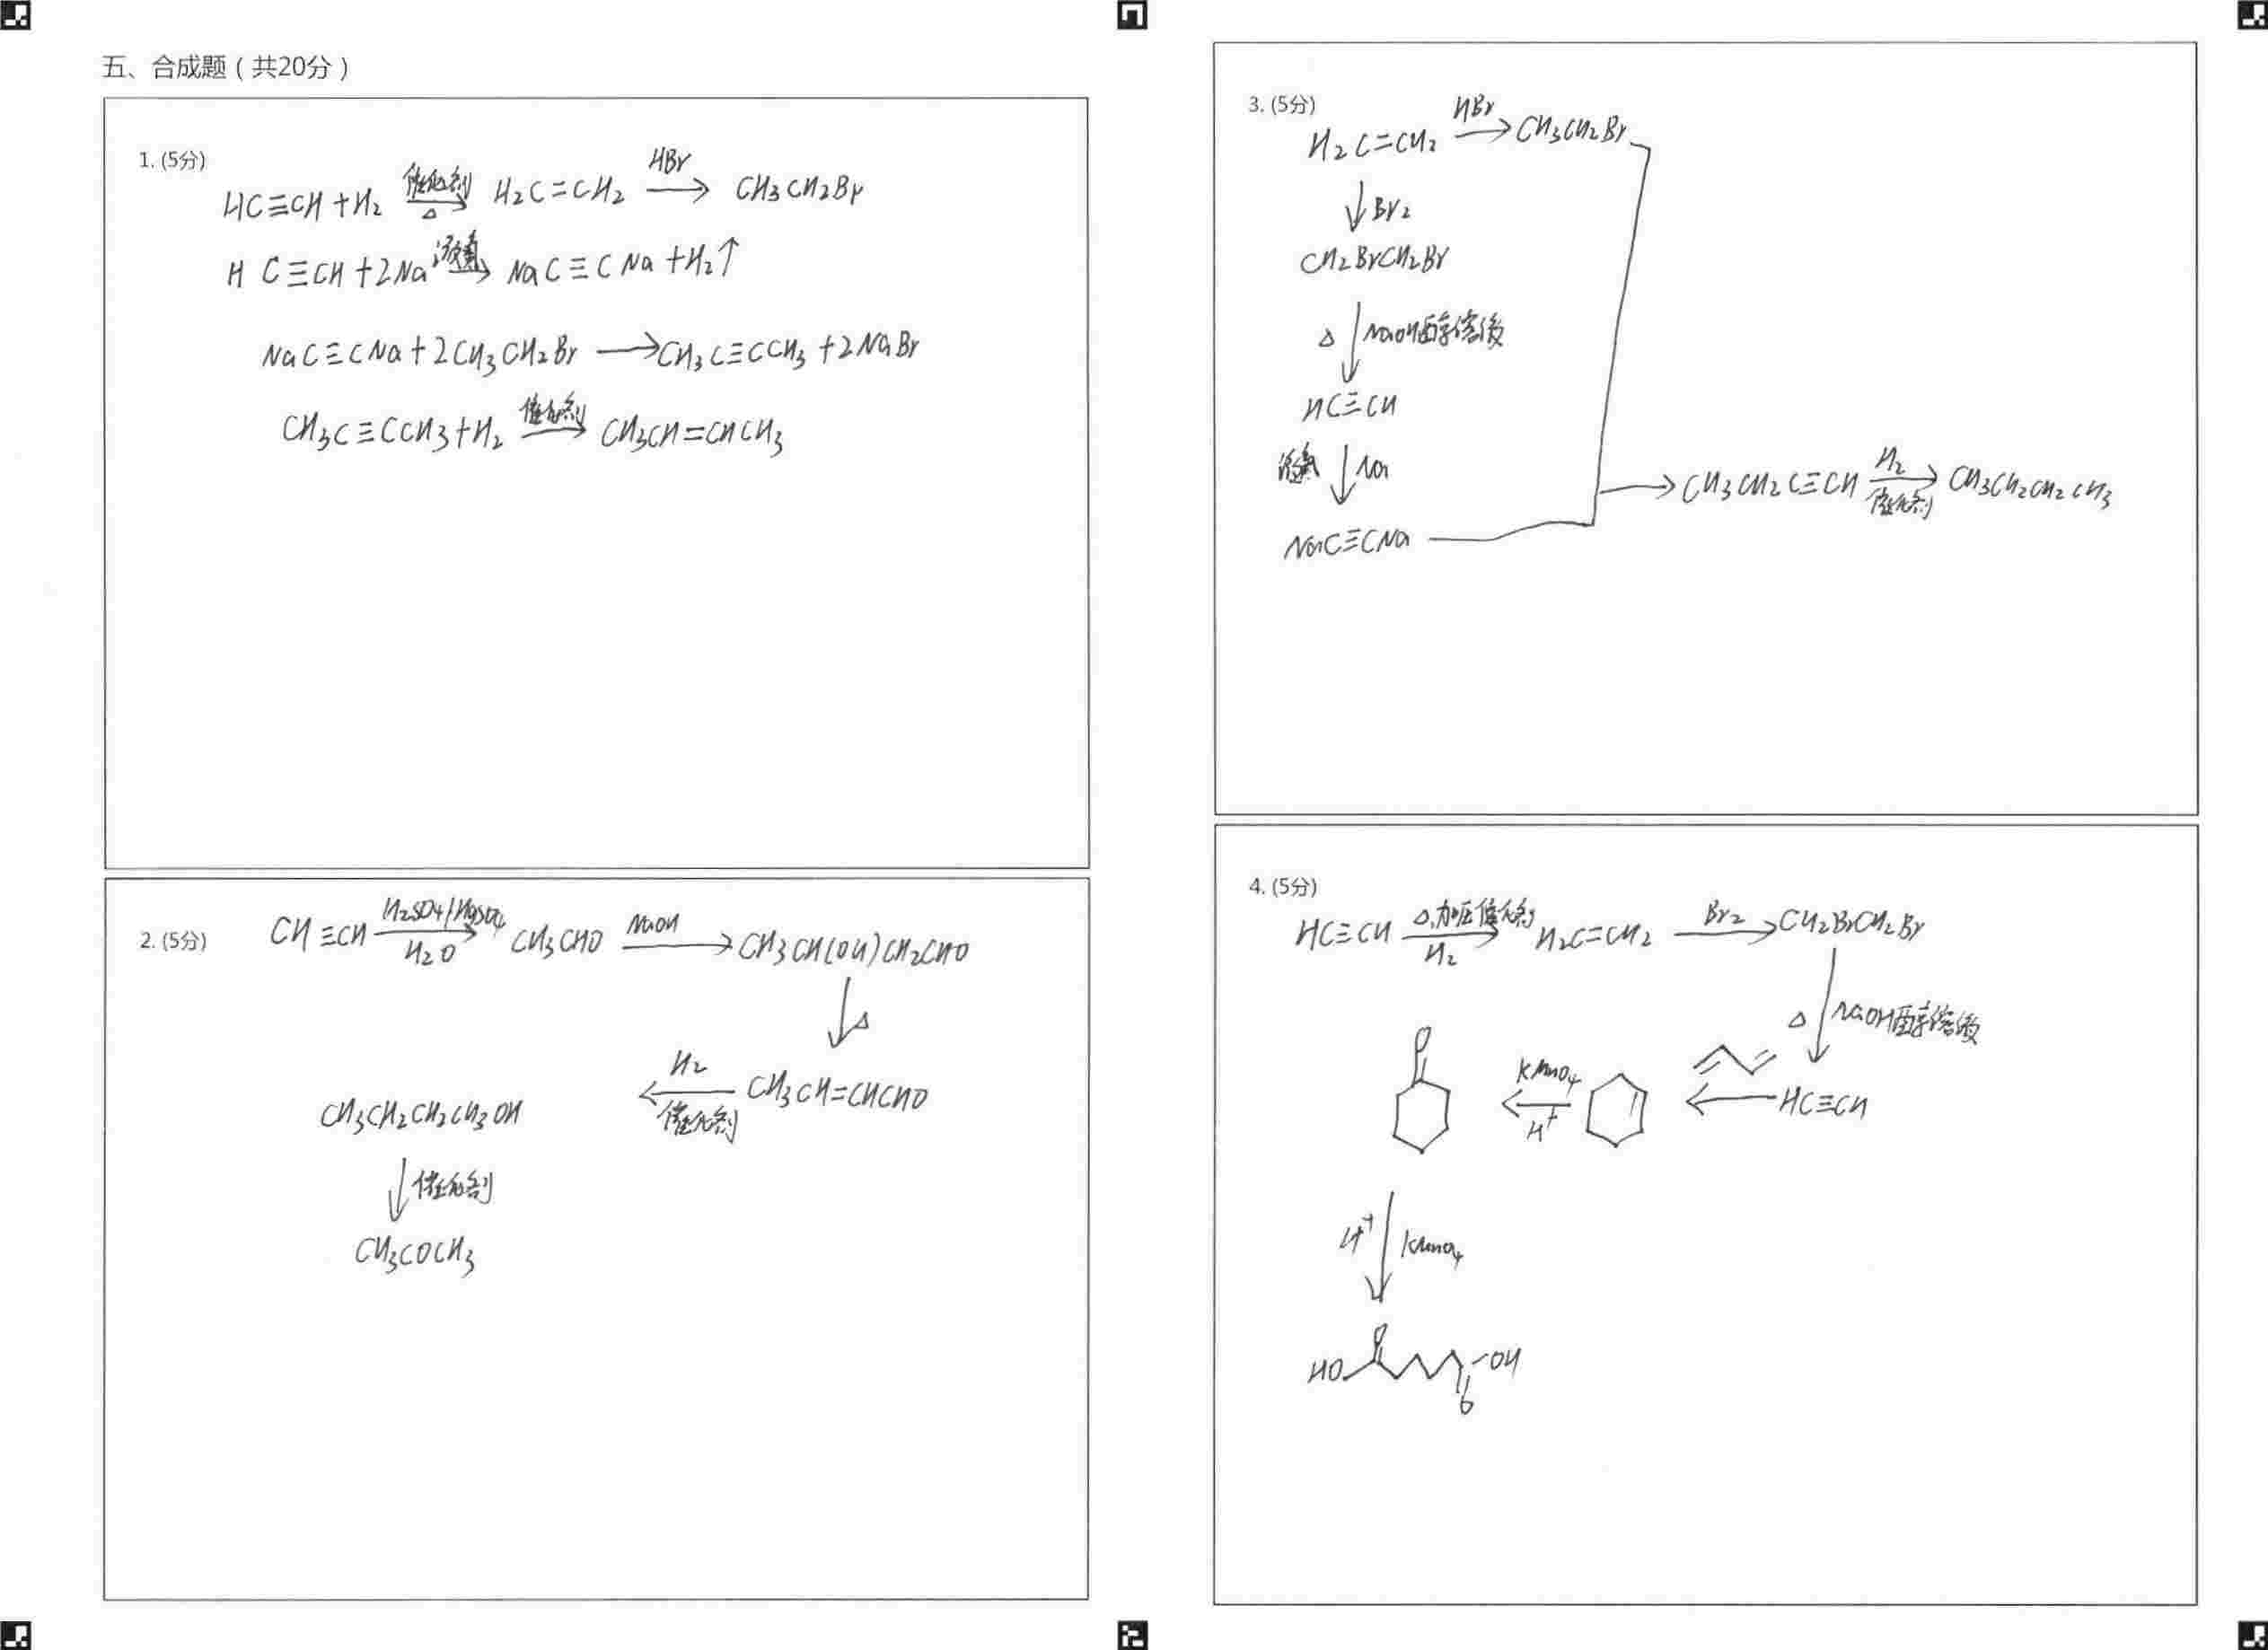 五、合成题（共20分）
1. (5分)
HC≡CH+H₂ 催化剂 △ → H₂C=CH₂ HBr → CH₃CH₂Br
HC≡CH+2Na 液氨 → NaC≡CNa+H₂↑
NaC≡CNa+2CH₃CH₂Br → CH₃C≡CCH₃+2NaBr
CH₃C≡CCH₃+H₂ 催化剂 → CH₃CH=CHCH₃
2. (5分)
CH≡CH H₂SO₄/HgSO₄ H₂O → CH₃CHO NaOH → CH₃CH(OH)CH₂CHO
↓ △
CH₃CH₂CH₂CH₃OH ← H₂ 催化剂 CH₃CH=CHCHO
↓ 催化剂
CH₃COCH₃
3. (5分)
H₂C=CH₂ HBr → CH₃CH₂Br
↓ Br₂
CH₂BrCH₂Br
△ ↓ NaOH醇溶液
HC≡CH
液氨 ↓ Na
→ CH₃CH₂C≡CH H₂ 催化剂 → CH₃CH₂CH₂CH₃
NaC≡CNa
4. (5分)
HC≡CH △,加压 催化剂 H₂ → H₂C=CH₂ Br₂ → CH₂BrCH₂Br
△ ↓ NaOH醇溶液
O
← KMnO₄ H⁺ ← HC≡CH
H⁺ ↓ KMnO₄
O
HO OH
O